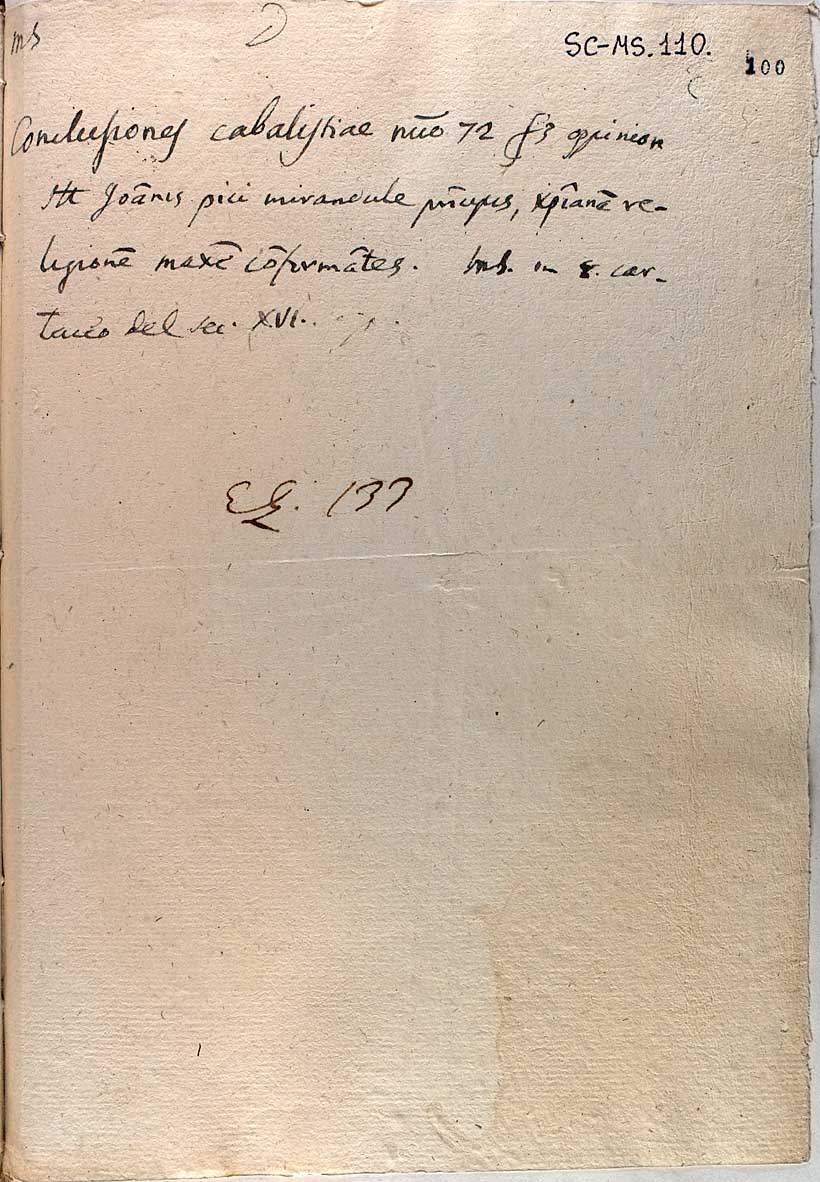 ms
SC-MS.110.
100
Conclusiones cabalisticae nūo 72 opinion
Joānis pici mirandule pn̄cipis, xp̄ianā re-
ligionē maxē cōfirmātes. Ms. in 8. car-
taceo del sec. XVI.
133